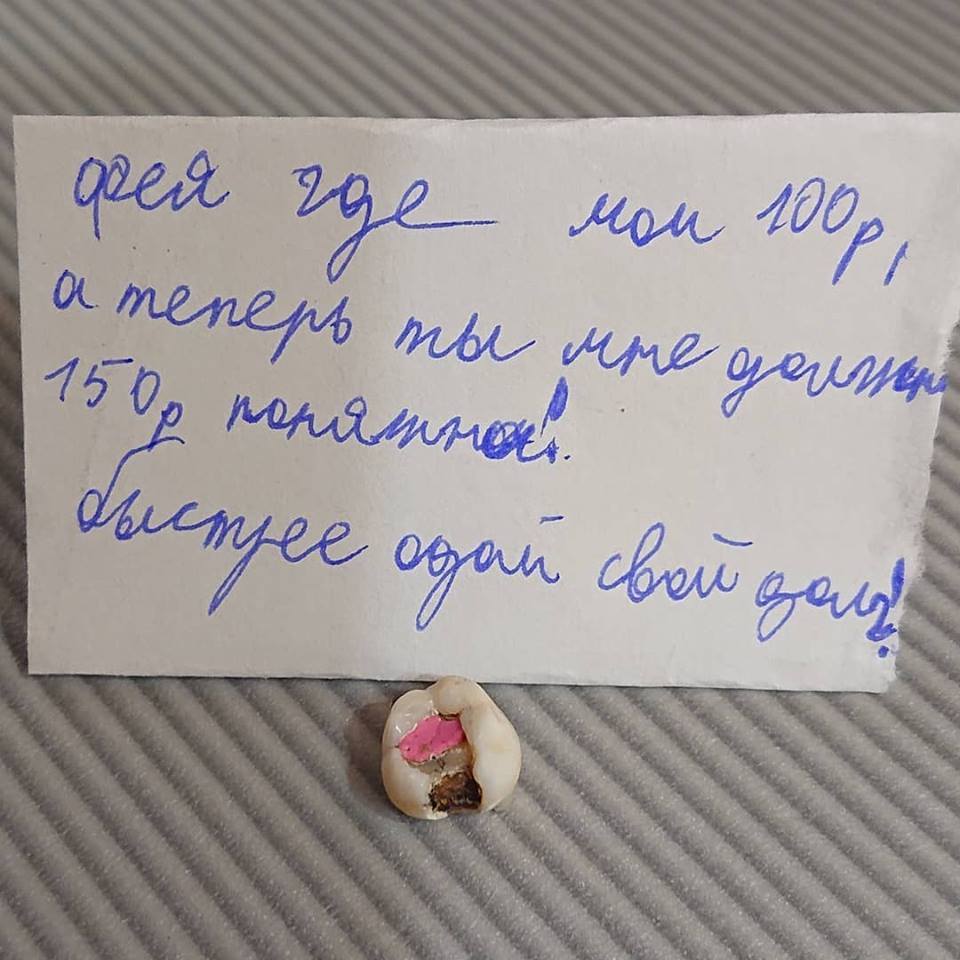 фея где мои 100р,
а теперь ты мне должна
150р понятно!
быстрее одай свой долг!